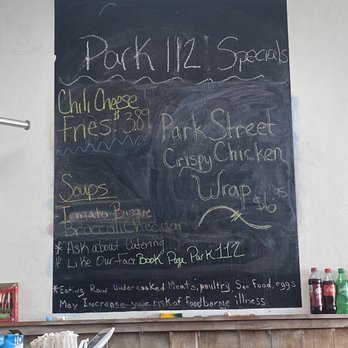 Park 112 Specials
Chili Cheese
Fries $3.89
Park Street
Crispy Chicken
Wrap $6.95
Soups
Tomato Bisque
Broccoli Cheddar
* Ask about Catering
* Like Our FaceBook Page Park 112
*Eating Raw undercooked Meats, poultry Sea food, eggs
May Increase your risk of foodborne illness